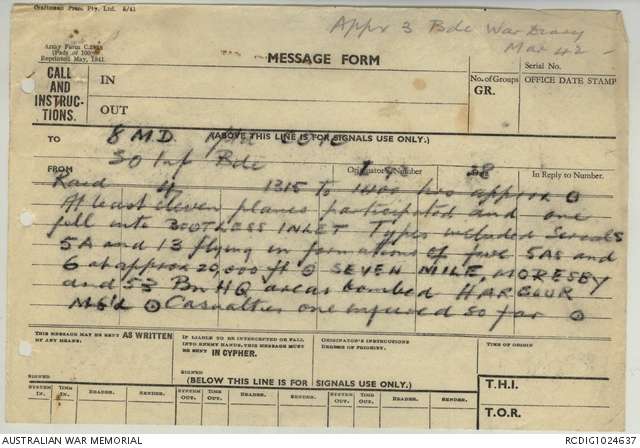 Craftsman Press Pty. Ltd. 8/41
Appx 3 Bde War Diary
Mar 42
Army Form
(Pads of 100)
Reprinted May, 1941
MESSAGE FORM
Serial No.
CALL AND INSTRUC-TIONS.
IN
OUT
No. of Groups
GR.
OFFICE DATE STAMP
TO
8 M D
(ABOVE THIS LINE IS FOR SIGNALS USE ONLY.)
FROM
30 Inf Bde
Originator's Number
28
In Reply to Number.
Raid 4 1315 to 1400 hrs approx O
At least eleven planes participated and one
fell into BOOTLESS INLET Types included Serials
5A and 13 flying in formations of five 5As and
6 at approx 20,000 ft O SEVEN MILE, MORESBY
and 53 Bn HQ areas bombed HARBOUR
MG'd O Casualties one injured so far O
THIS MESSAGE MAY BE SENT AS WRITTEN
BY ANY MEANS.
IF LIABLE TO BE INTERCEPTED OR FALL
INTO ENEMY HANDS, THIS MESSAGE MUST
BE SENT IN CYPHER.
ORIGINATOR'S INSTRUCTIONS
DEGREE OF PRIORITY.
TIME OF ORIGIN
SIGNED
SIGNED
(BELOW THIS LINE IS FOR SIGNALS USE ONLY.)
SYSTEM IN. TIME IN. READER. SENDER. SYSTEM OUT TIME OUT READER. SENDER. SYSTEM OUT. TIME OUT. READER. SENDER.
T.H.I.
T.O.R.
AUSTRALIAN WAR MEMORIAL
RCDIG1024637